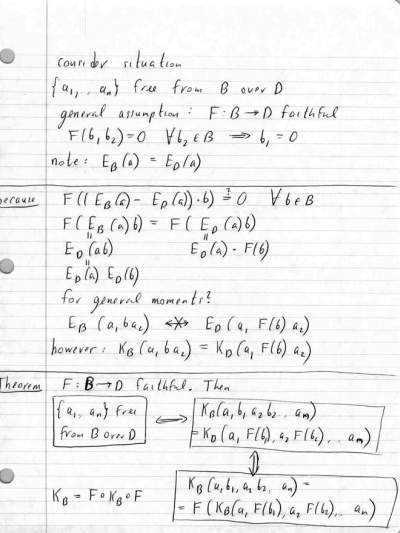 consider situation
{a₁, .., aₙ} free from B over D
general assumption: F: B → D faithful
F(b₁ b₂) = 0 ∀ b₂ ∈ B ⟹ b₁ = 0
note: E_B(a) = E_D(a)
because F((E_B(a) - E_D(a))·b) ≟ 0 ∀ b ∈ B
F(E_B(a)b) = F(E_D(a)b)
|| ||
E_D(ab) E_D(a)·F(b)
||
E_D(a) E_D(b)
for general moments?
E_B(a₁ b a₂) ↮ E_D(a₁ F(b) a₂)
however: K_B(a₁ b a₂) = K_D(a₁ F(b) a₂)
Theorem F: B → D faithful. Then
{a₁, aₙ} free from B over D ⟺ K_B(a₁ b₁ a₂ b₂ .., aₘ)
= K_D(a₁ F(b₁), a₂ F(b₂), .., aₘ)
⇕
K_B = F∘K_B∘F
K_B(a₁ b₁, a₂ b₂, .. aₙ) =
= F(K_B(a₁ F(b₁), a₂ F(b₂), .. aₙ)